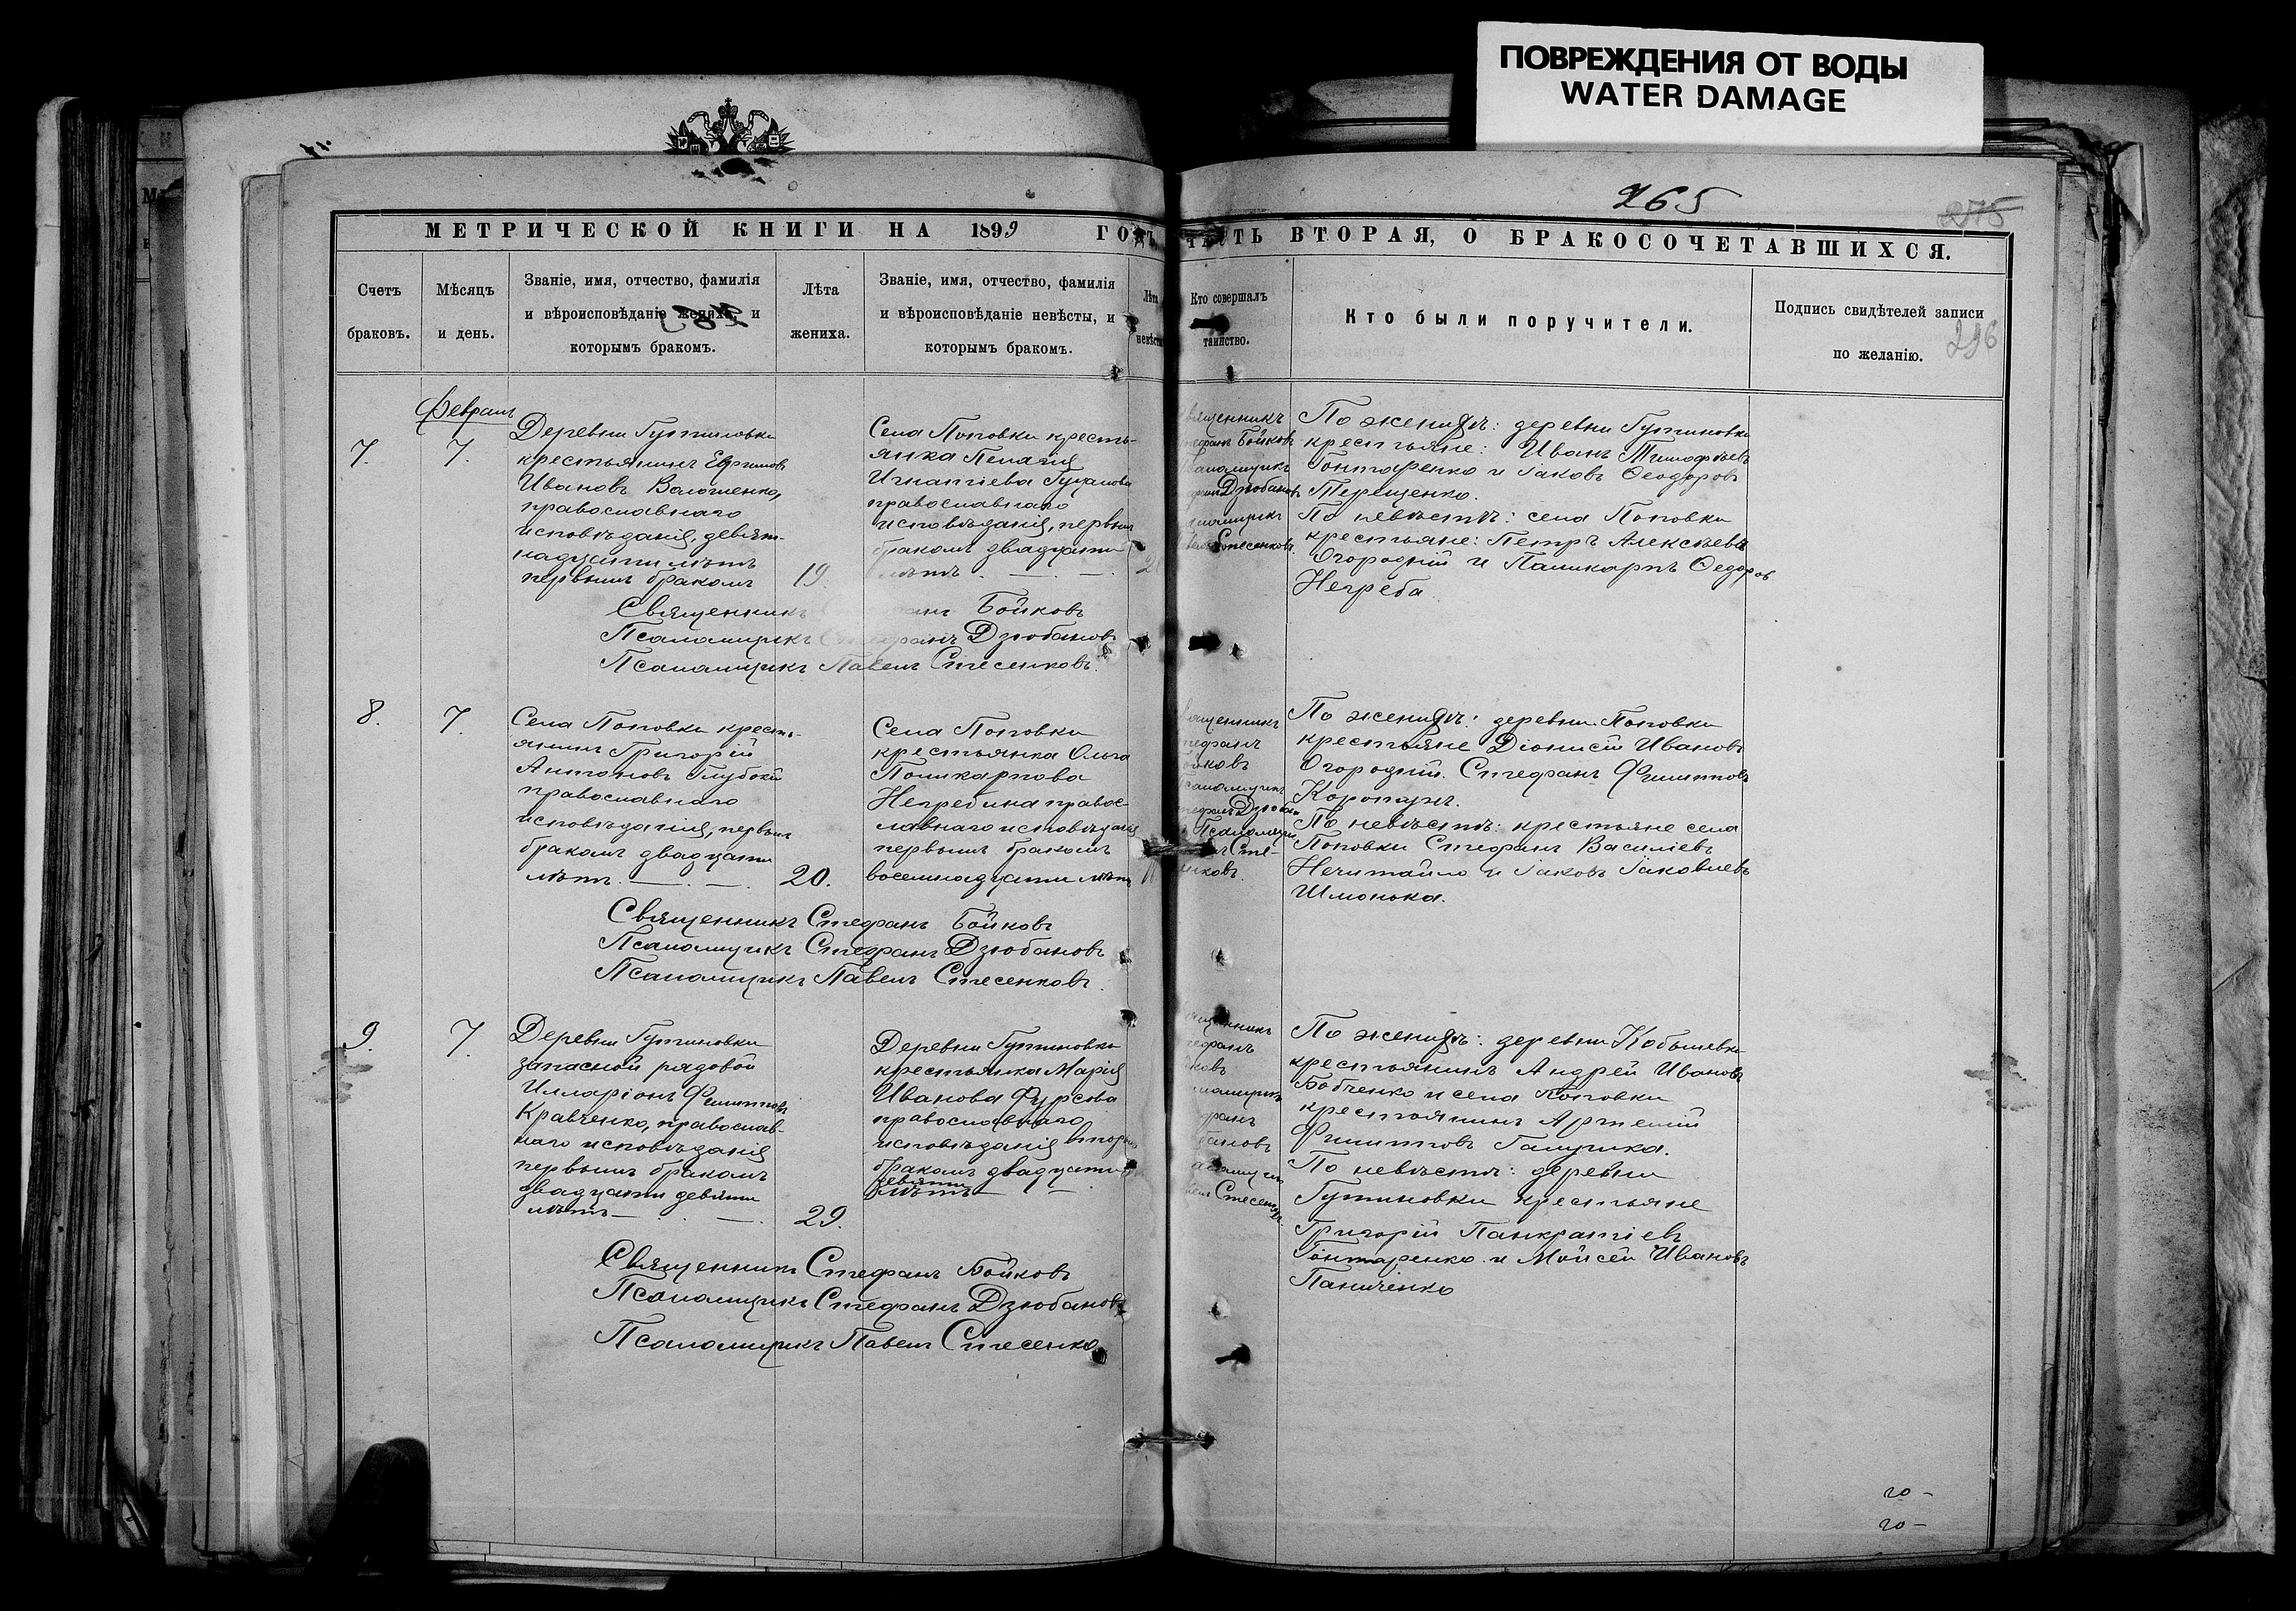 ПОВРЕЖДЕНИЯ ОТ ВОДЫ
WATER DAMAGE
265
275
МЕТРИЧЕСКОЙ КНИГИ НА 1899 ГОДЪ, ЧАСТЬ ВТОРАЯ, О БРАКОСОЧЕТАВШИХСЯ.
Счетъ
браковъ.
Мѣсяцъ
и день.
Званіе, имя, отчество, фамилія
и вѣроисповѣданіе жениха, и
которымъ бракомъ.
Лѣта
жениха.
Званіе, имя, отчество, фамилія
и вѣроисповѣданіе невѣсты, и
которымъ бракомъ.
Лѣта
невѣсты
Кто совершалъ
таинство.
Кто были поручители.
Подпись свидѣтелей записи
по желанію.
296
Февраль
7.
7.
Деревни Гутиновки
крестьянинъ
Ивановъ Волошенко,
православнаго
исповѣданія, девят-
надцати лѣтъ
первымъ бракомъ
19.
Села Поповки кресть-
янка Пелагія
Игнатіева
православнаго
исповѣданія, первым
бракомъ двадцати
лѣтъ.
Бойковъ
Дзюбановъ
По женихѣ: деревни Гутиновки
крестьяне: Иванъ Тимофѣевъ
Гонтаренко и Іаковъ Ѳеодоровъ
Терещенко.
По невѣстѣ: села Поповки
крестьяне: Петръ Алексѣевъ
Огородній и Поликарпъ Ѳедоров
Негреба
Священникъ Бойковъ
Псаломщикъ Стефанъ Дзюбановъ
Псаломщикъ Павелъ Стесенковъ.
8.
7.
Села Поповки кресть-
янинъ Григорій
Антоновъ Глубокій
православнаго
исповѣданія, первым
бракомъ двадцати
лѣтъ.
20.
Села Поповки
крестьянка Ольга
Поликарпова
Негребина правос-
лавнаго исповѣданія
первымъ бракомъ
восемнадцати лѣтъ
По женихѣ: деревни Поповки
крестьяне Діонисій Ивановъ
Огородній. Стефанъ Филипповъ
По невѣстѣ: крестьяне села
Поповки Стефанъ Василіевъ
Нечитайло и Іаковъ Іаковлевъ
Шмонька.
Священникъ Стефанъ Бойковъ
Псаломщикъ Стефанъ Дзюбановъ
Псаломщикъ Павелъ Стесенковъ.
9.
7.
Деревни Гутиновки
запасной рядовой
Илларіонъ Филипповъ
Кравченко, православ-
наго исповѣданія
первымъ бракомъ
двадцати девяти
лѣтъ
29.
Деревни Гутиновки
крестьянка Марія
Иванова Фурсова
православнаго
исповѣданія вторым
бракомъ двадцати
девяти
лѣтъ
По женихѣ: деревни Кобылевки
крестьянинъ Андрей Ивановъ
Бобченко и села Поповки
крестьянинъ Артемій
Филипповъ Галушка.
По невѣстѣ: деревни
Гутиновки крестьяне
Григорій Панкратіевъ
Гонтаренко и Мойсей Ивановъ
Паниченко
Священникъ Стефанъ Бойковъ
Псаломщикъ Стефанъ Дзюбановъ
Псаломщикъ Павелъ Стесенко